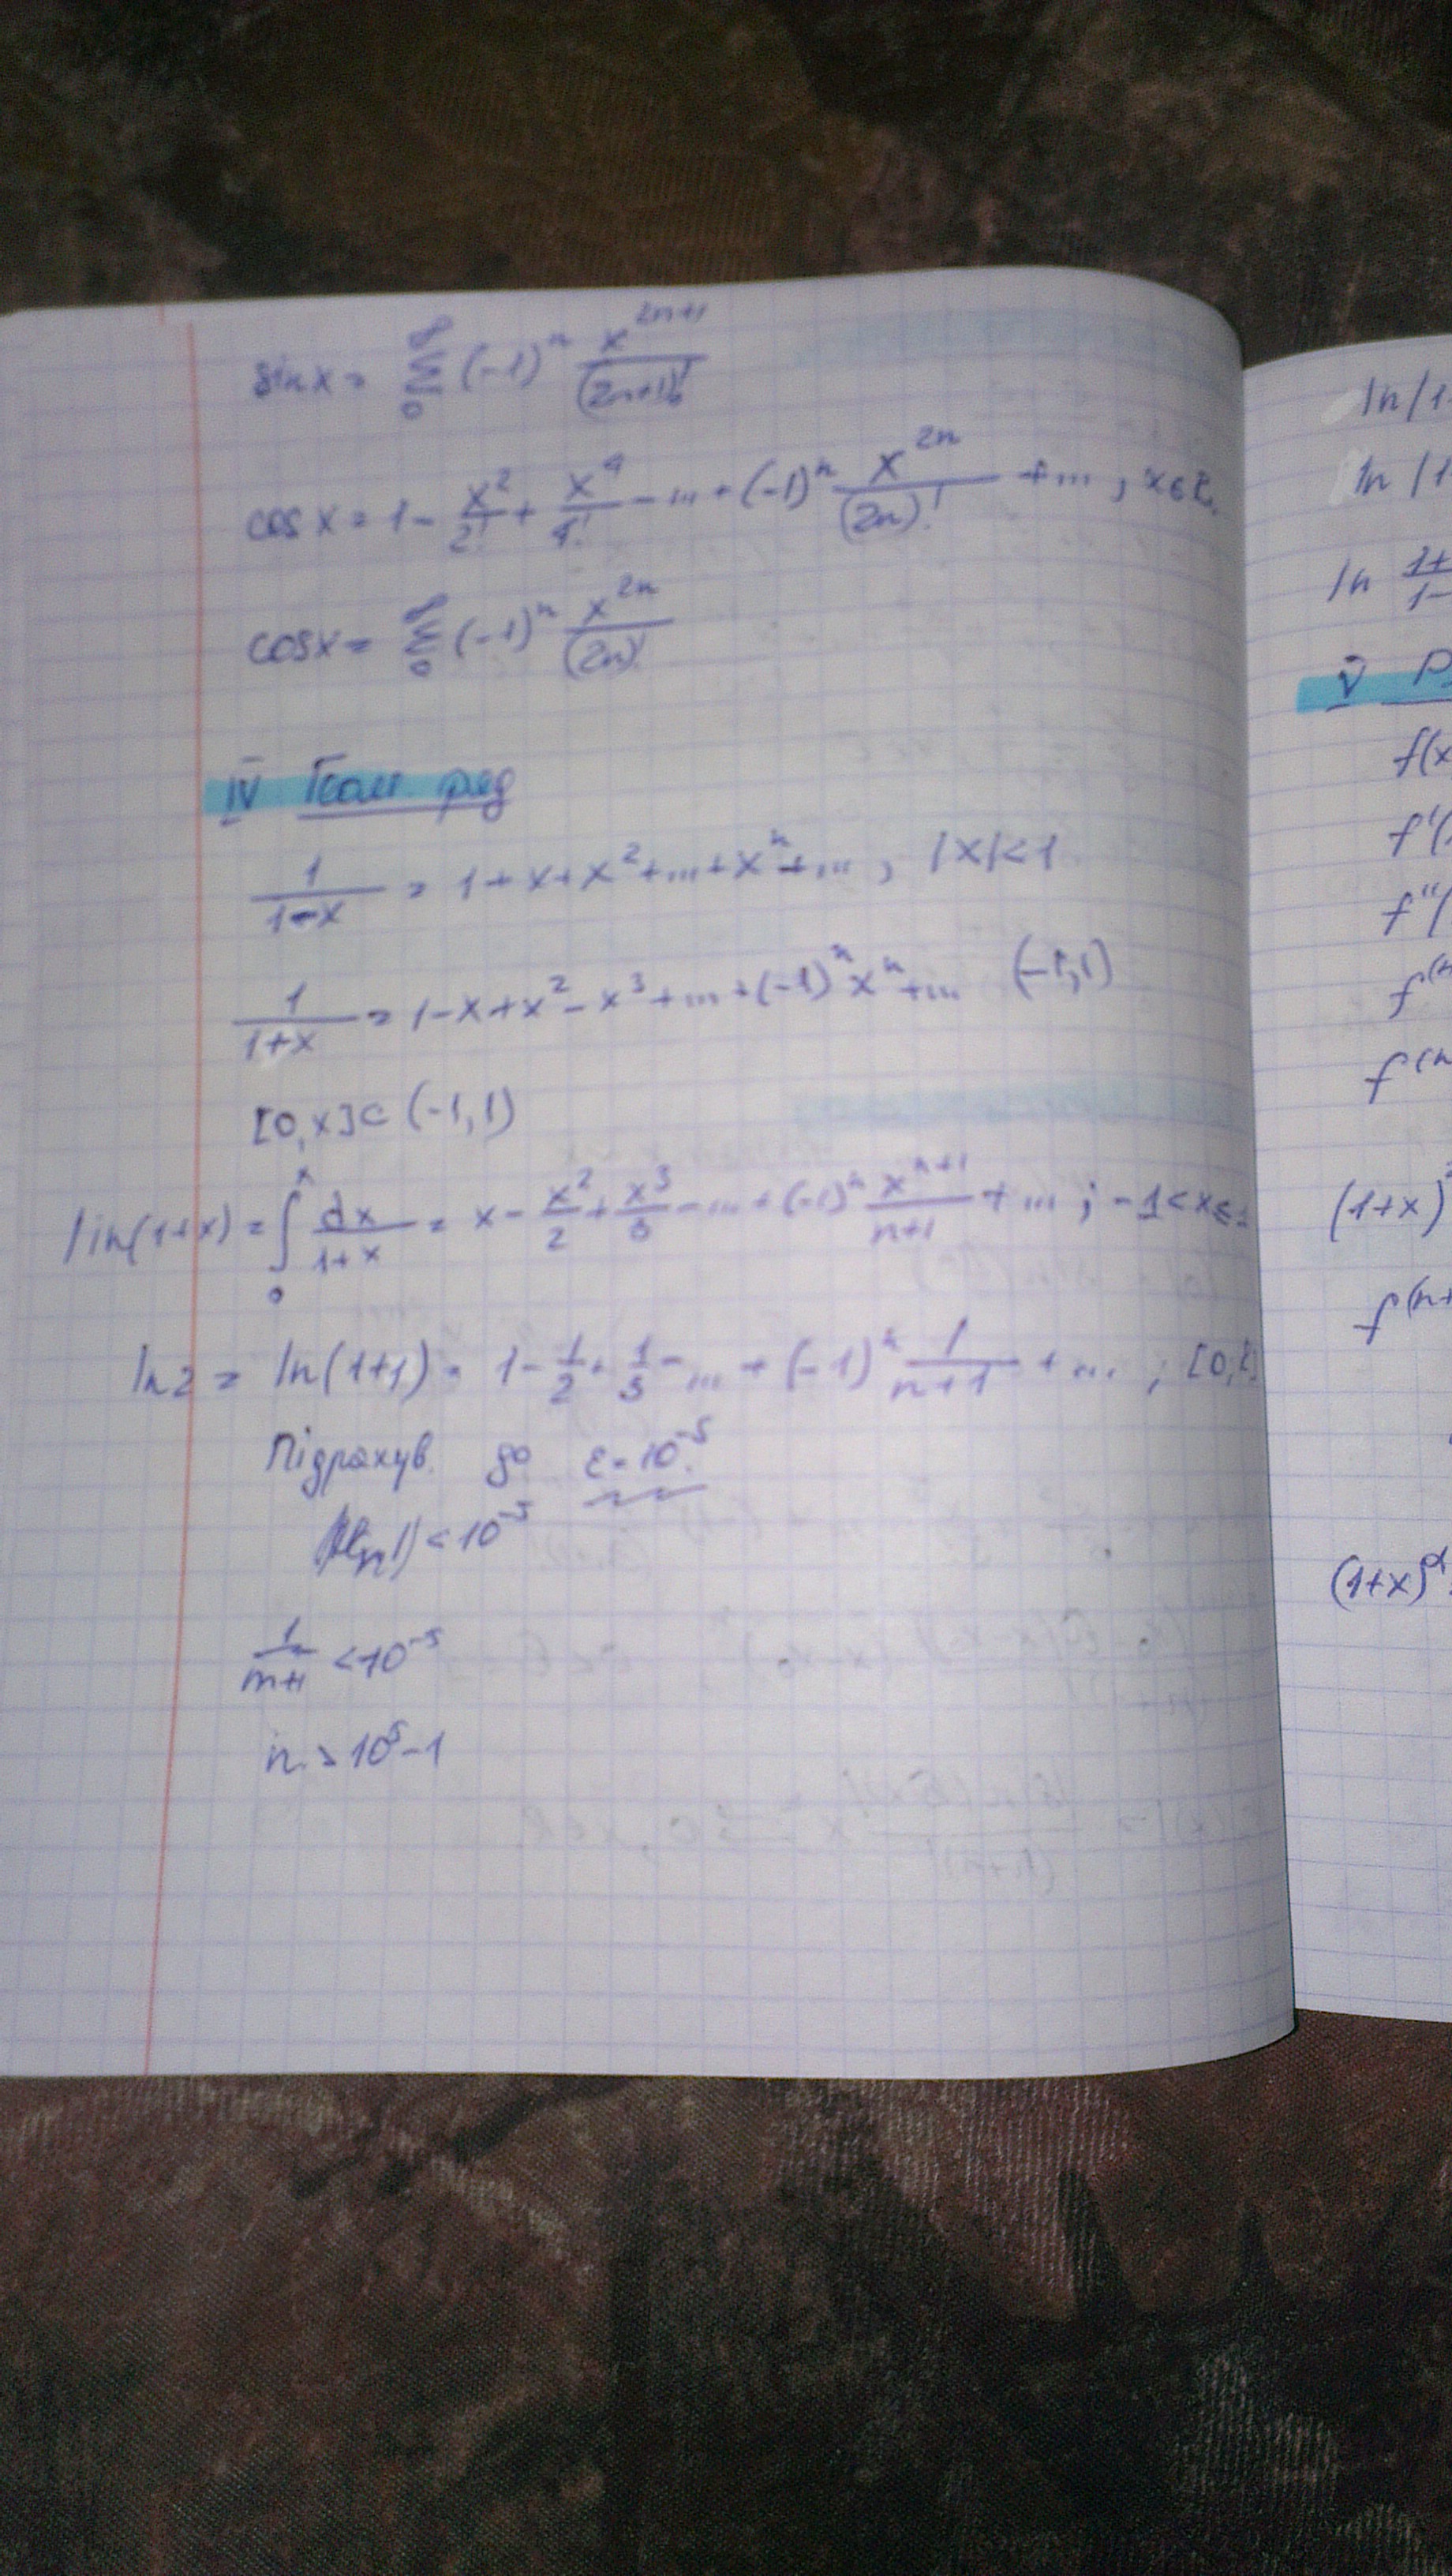 sin x = ∞ Σ 0 (-1)^n x^(2n+1) / (2n+1)!
cos x = 1 - x^2/2! + x^4/4! - ... + (-1)^n x^(2n)/(2n)! + ... , x ∈ R.
cos x = ∞ Σ 0 (-1)^n x^(2n) / (2n)!
IV Геом ряд
1/(1-x) = 1 + x + x^2 + ... + x^n + ... , |x| < 1
1/(1+x) = 1 - x + x^2 - x^3 + ... + (-1)^n x^n + ... (-1, 1)
[0, x] ⊂ (-1, 1)
ln(1+x) = ∫_0^x dx/(1+x) = x - x^2/2 + x^3/3 - ... + (-1)^n x^(n+1)/(n+1) + ... ; -1 < x ≤ 1
ln 2 = ln(1+1) = 1 - 1/2 + 1/3 - ... + (-1)^n 1/(n+1) + ... ;
Підрахув. до ε = 10^-5.
< 10^-5
1/(n+1) < 10^-5
n > 10^5 - 1
ln
ln
ln
V
f(x
f'(
f''(
(1+x)
(1+x)^α